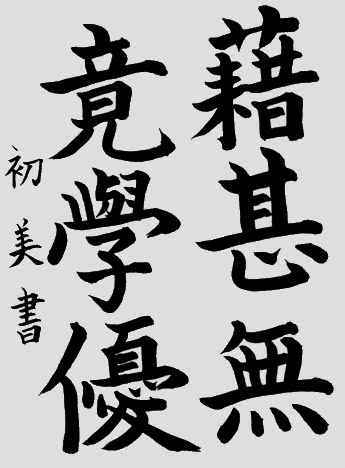 藉甚無
竟學優
初美書